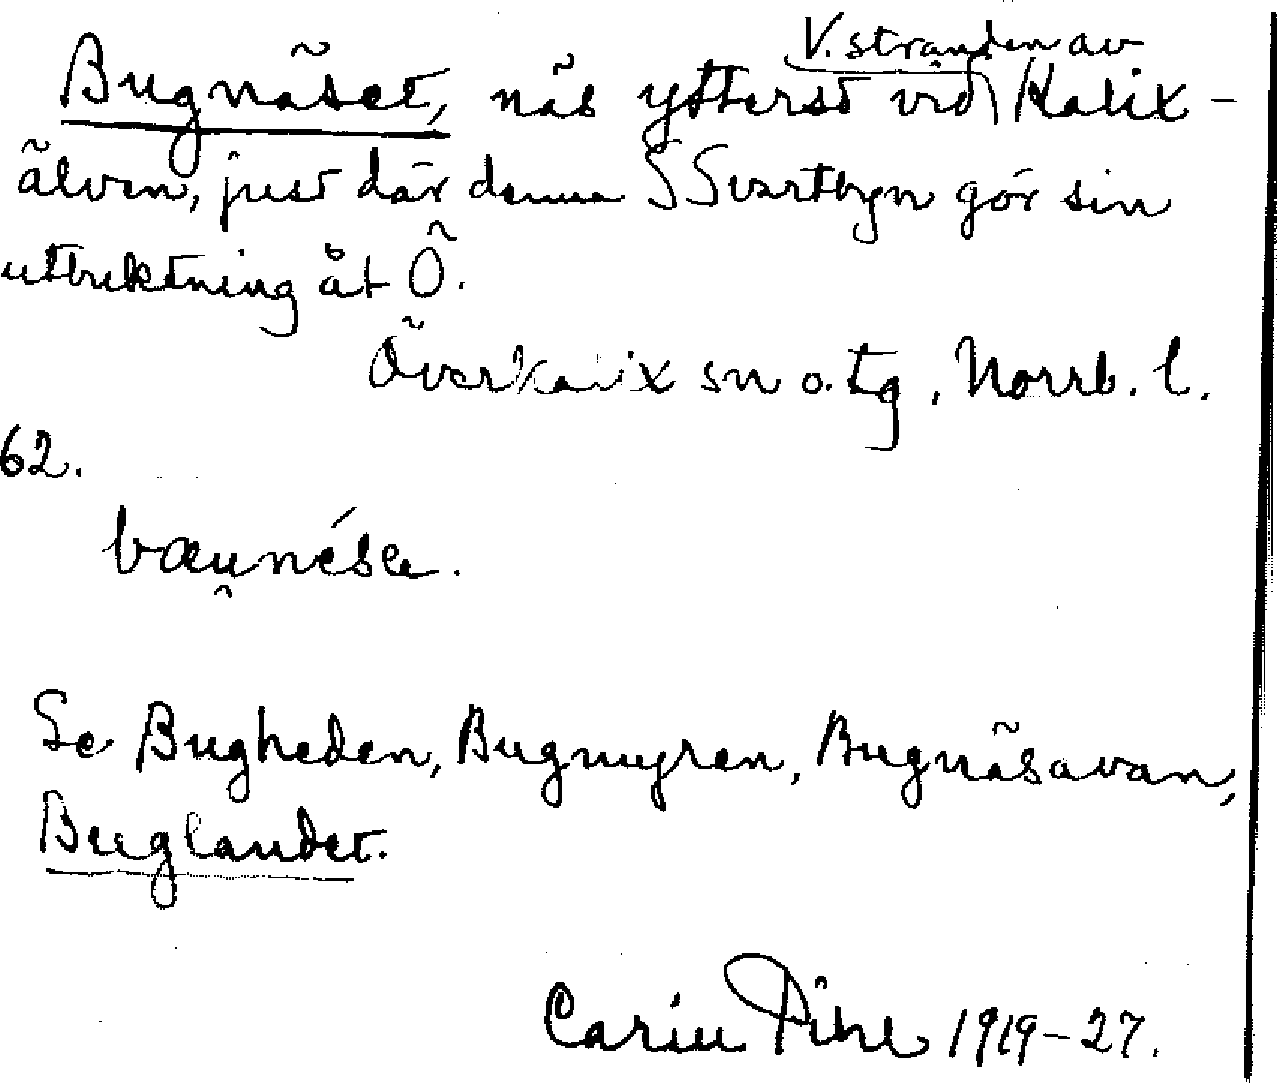 V. stranden av
Bugnäset, näs ytterst vid Kalix-
älven, just där denna S Svartbyn gör sin
utbuktning åt Ö.
Överkalix sn o. tg, Norrb. l.
62.
bæu̯nésɐ.
Se Bugheden, Bugmyren, Bugnäsavan,
Buglandet.
Carin Pihl 1919-27.